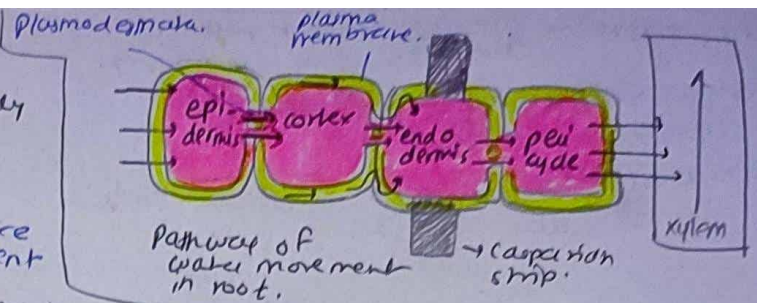 Plasmodesmata.
plasma
membrane.
epi-
dermis
cortex
endo
dermis
peri
cycle
xylem
Pathway of
water movement
in root.
→ casparian
strip.